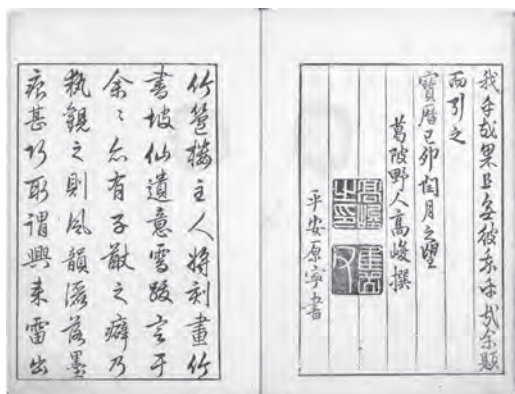 我乎哉果且無彼我乎哉余題
而引之
寶曆己卯閏月之望
葛陂野人高峻撰
平安原寧書
高峻之印
竹苞樓主人將刻畫竹
書坡仙遺意需跋言于
余〻亦有子猷之癖乃
執觀之則風韻灑落墨
痕甚巧所謂興来雷出